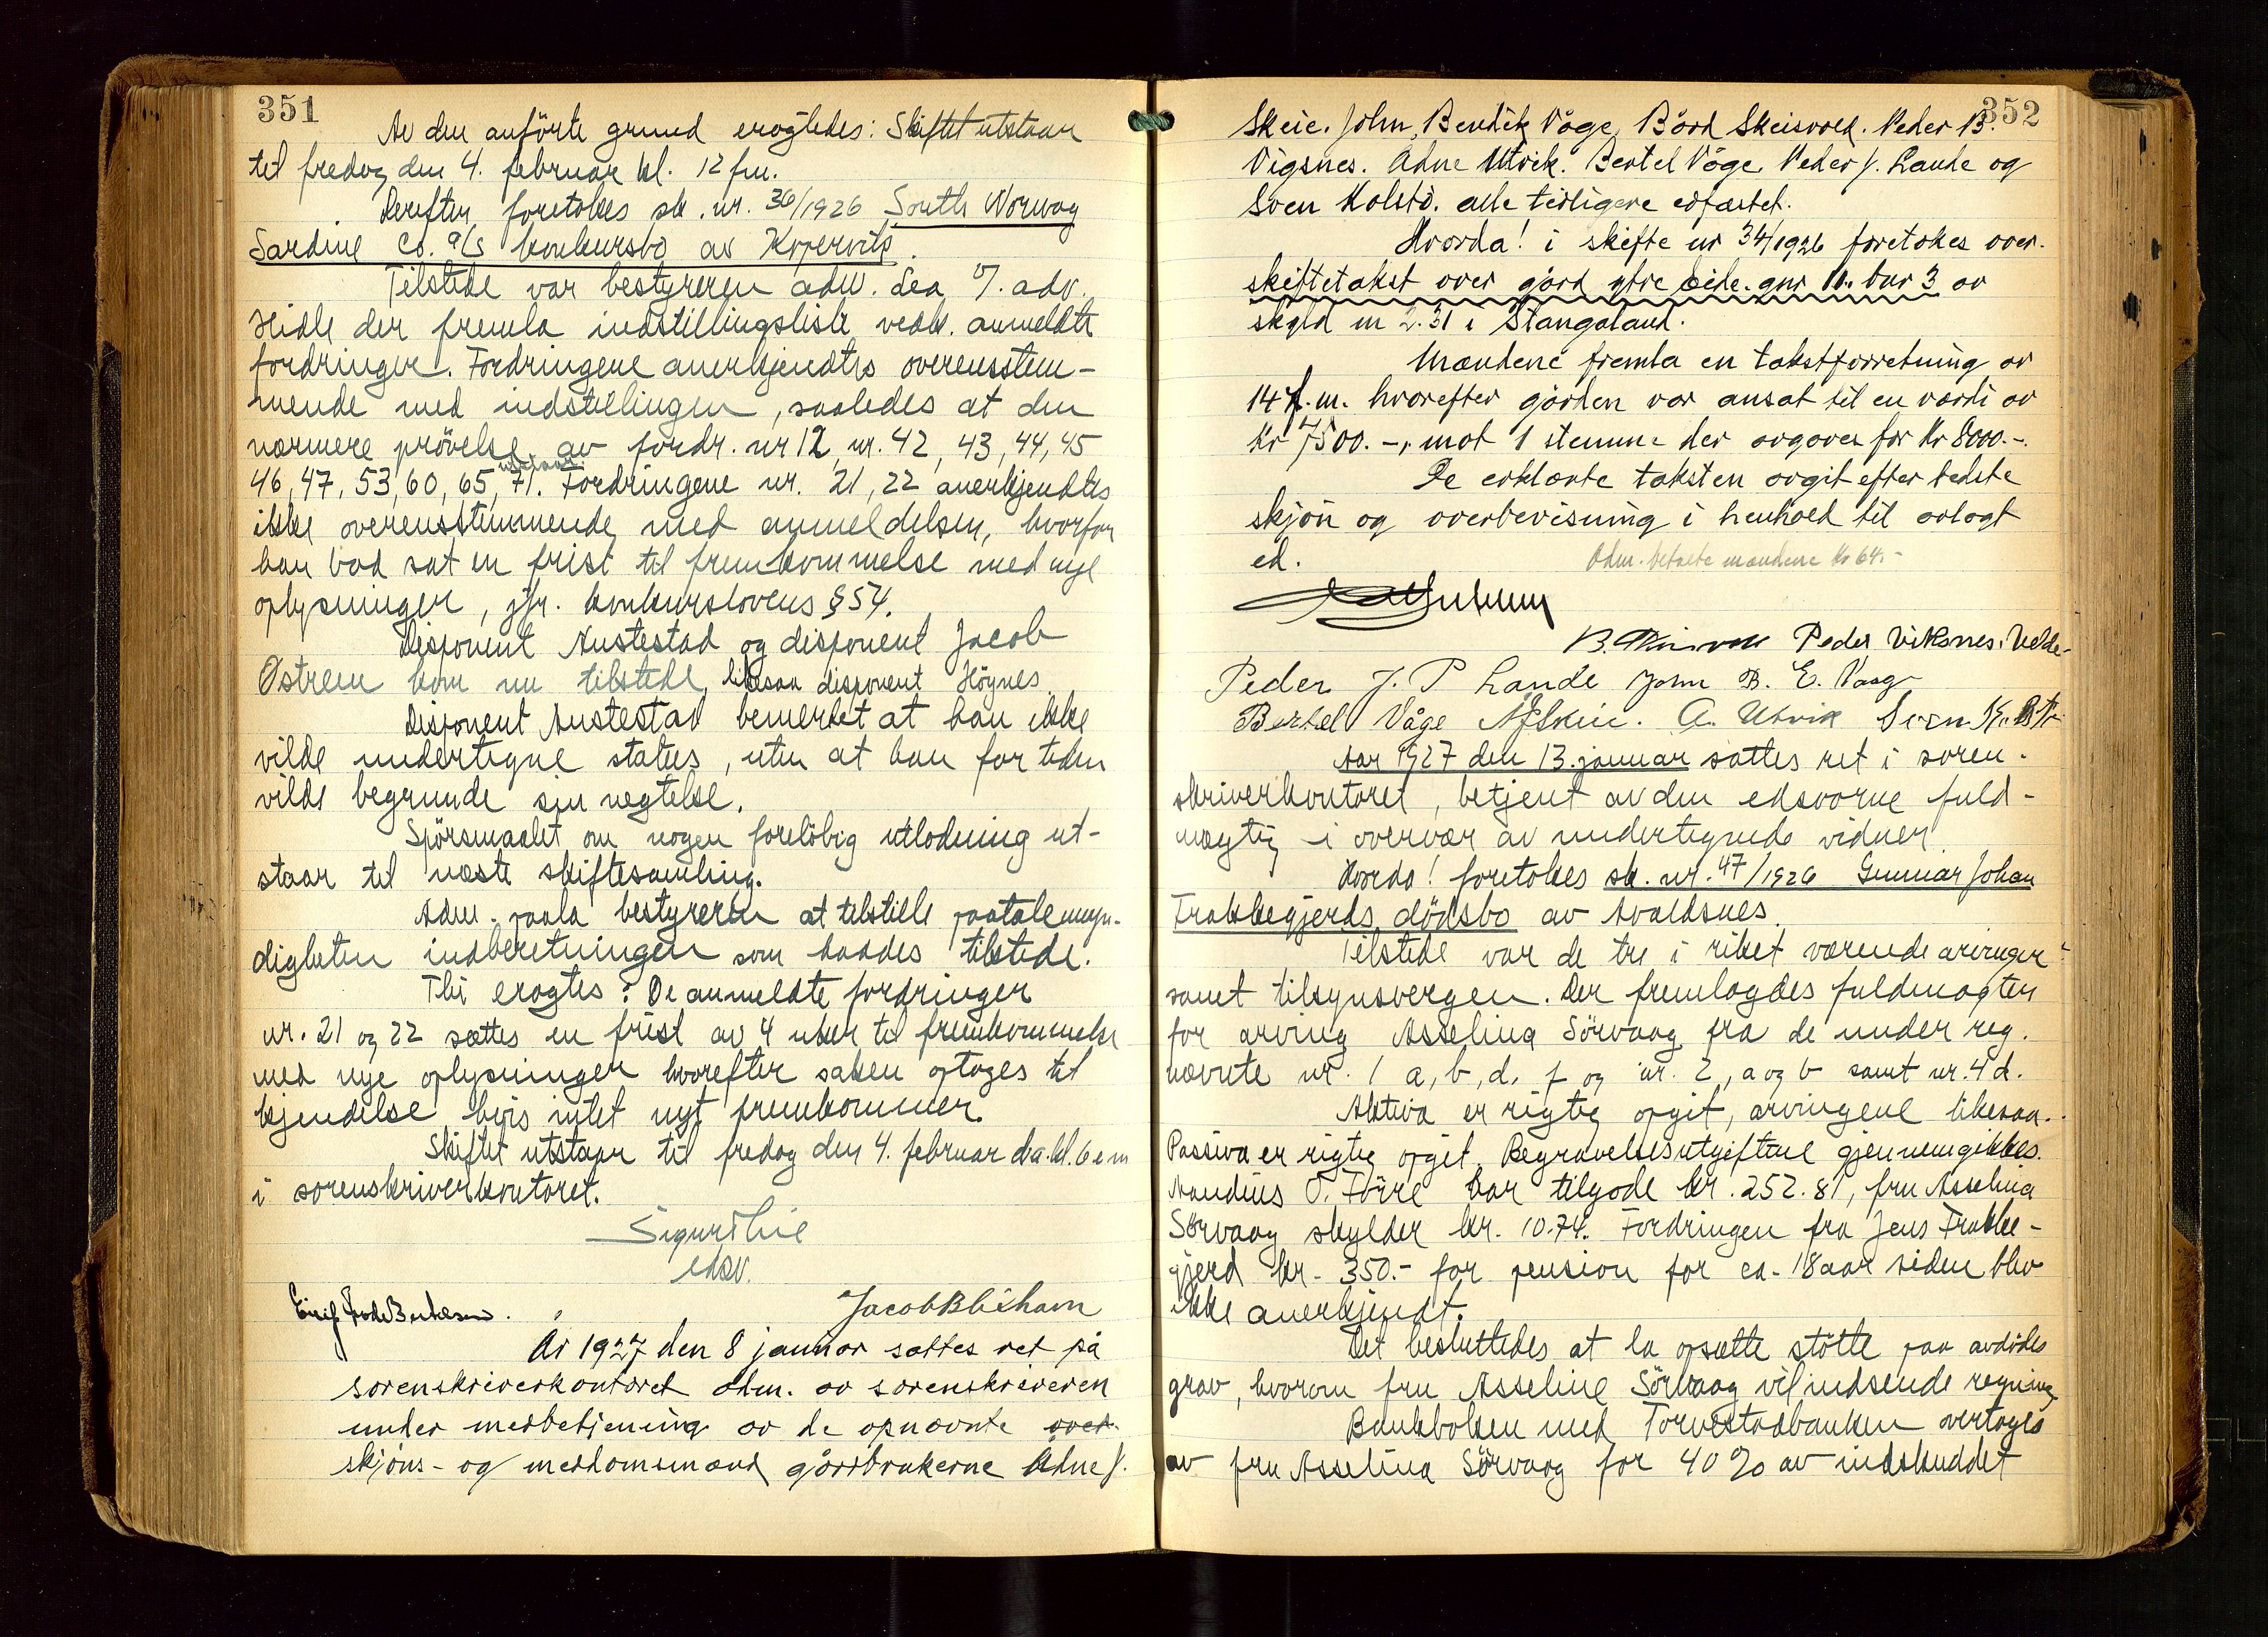 351
Av den anförte grund eragtedes: Skiftet utstaar
til fredag den 4. februar kl. 12 fm.
Derefter foretokes sk. nr. 36/1926 South Norway
Sardine Co. a/s konkursbo av Kopervik.
Tilstede var bestyreren adv. Lea v/. adv.
Hidle der fremla indstillingsliste vedk. anmeldte
fordringer. Fordringene anerkjendtes overensstem-
mende med indstillingen, saaledes at den
nærmere prövelse av fordr. nr 12, nr. 42, 43, 44, 45
utstaar
46, 47, 53, 60, 65, 71. Fordringene nr. 21, 22 anerkjendtes
ikke overensstemmende med anmeldelsen, hvorfor
han bad sat en frist til fremkommelse med nye
oplysninger, jfr. konkurslovens § 54.
Disponent Austestad og disponent Jacob
Östrem kom nu tilstede, likesaa disponent Högnes.
Disponent Austestad bemerket at han ikke
vilde undertegne status, uten at han for tiden
vilde begrunde sin negtelse.
Spörsmaalet om nogen forelöbig utlodning ut-
staar til næste skiftesamling.
Adm. paala bestyreren at tilstille paatalemyn-
digheten indberetningen som haddes tilstede.
Thi eragtes: De anmeldte fordringer
nr. 21 og 22 sættes en frist av 4 uker til fremkommelse
med nye oplysninger hvorefter saken optages til
kjendelse hvis intet nyt fremkommer.
Skiftet utstaar til fredag den 4. februar d.a. kl. 6 em
i sorenskriverkontoret.
Sigurd Lie
edsv.
Jacob Blixhavn
År 1927 den 8 januar sattes ret på
sorenskriverkontoret adm. av sorenskriveren
under medbetjening av de opnævnte over-
skjöns- og meddomsmænd gårdbrukerne Ådne J.
352
Skeie. John Bendik Våge, Bård Skeisvold. Peder B.
Vigsnes. Ådne Utvik. Bertel Våge. Peder J. Lande og
Sven Kolstö. alle tidligere edfæstet.
Hvorda! i skifte nr 34/1926 foretokes over-
skiftetakst over gård ytre Eide. gnr 11. bnr 3 av
skyld m 2.31 i Stangaland.
Mændene fremla en takstforretning av
14 f.m. hvorefter gården var ansat til en værdi av
Kr 7500.-, mot 1 stemme der avgaves for Kr 8000.-.
De erklærte taksten avgit efter bedste
skjön og overbevisning i henhold til avlagt
ed.
Adm. betalte mændene Kr 64.-
Peder Viksnes. Velde-
Peder J. P Lande John B. E. Vaag
Bertel Våge A J Skeie. A. Utvik Sven
Aar 1927 den 13. januar sattes ret i soren-
skriverkontoret, betjent av den edsvorne fuld-
mægtig i overvær av undertegnede vidner.
Hvorda! foretokes sk. nr. 47/1926 Gunnar Johan
Frakkegjerds dödsbo av Avaldsnes.
Tilstede var de tre i riket værende arvinger
samt tilsynsvergen. Der fremlagdes fuldmagter
for arving Asselina Sörvaag fra de under reg.
nævnte nr. 1 a, b, d, f og nr. 2, a og b samt nr. 4 d.
Aktiva er rigtig opgit, arvingene likesaa.
Passiva er rigtig opgit. Begravelsesutgiftene gjennemgikkes.
Naudius O. Förre har tilgode kr. 252.81, fru Asselina
Sörvaag skylder kr. 10.74. Fordringen fra Jens Frakke-
gjerd kr. 350.- for pension for ca. 18 aar siden blev
ikke anerkjendt.
Det besluttedes at la opsætte stötte paa avdödes
grav, hvorom fru Asseline Sörvaag vil indsende regning.
Bankboken med Torvestadbanken overtoges
av fru Asselina Sörvaag for 40 % av indskuddet